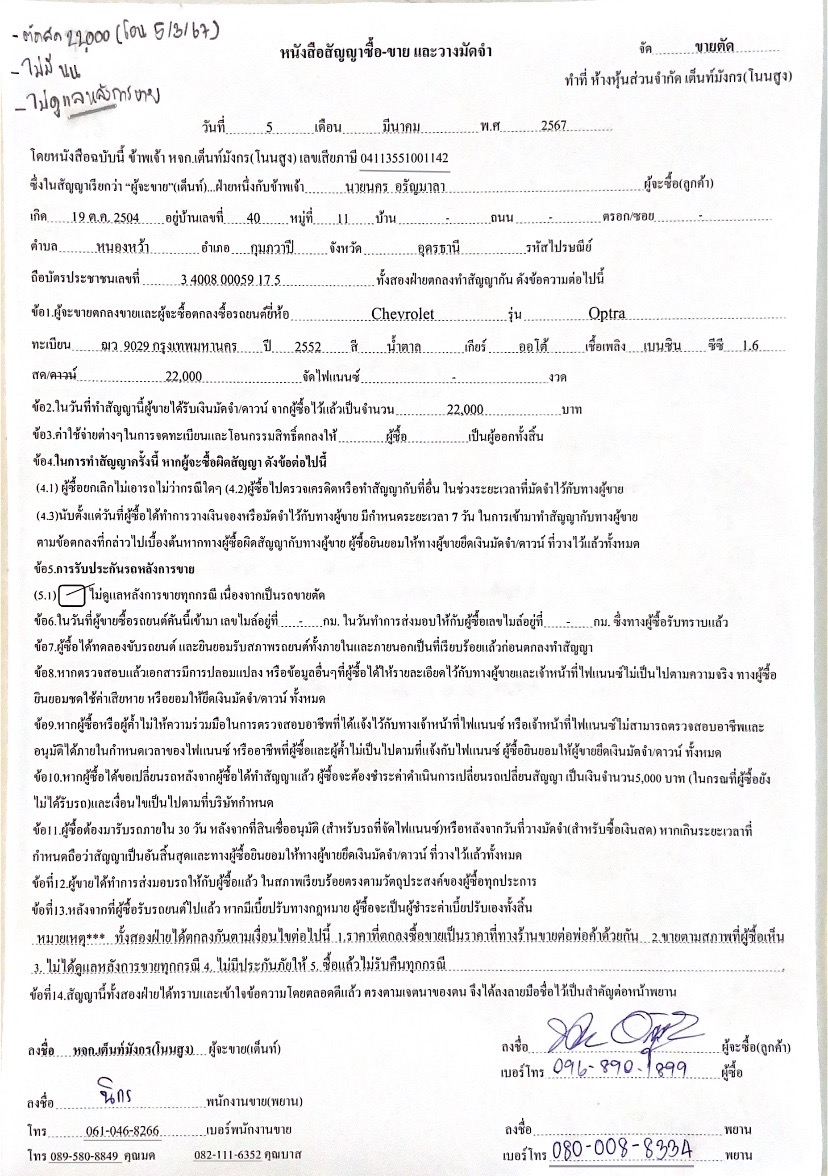 - ตัดสด 22,000 (โอน 5/3/67)
- ไม่มี นน
- ไม่ดูแลหลังการขาย
หนังสือสัญญาซื้อ-ขาย และวางมัดจำ
จัด ขายตัด
ทำที่ ห้างหุ้นส่วนจำกัด เต็นท์มังกร(โนนสูง)
วันที่ 5 เดือน มีนาคม พ.ศ 2567
โดยหนังสือฉบับนี้ ข้าพเจ้า หจก.เต็นท์มังกร(โนนสูง) เลขเสียภาษี 04113551001142
ซึ่งในสัญญาเรียกว่า "ผู้จะขาย"(เต็นท์)...ฝ่ายหนึ่งกับข้าพเจ้า นายนคร อรัญมาลา ผู้จะซื้อ(ลูกค้า)
เกิด 19 ต.ค. 2504 อยู่บ้านเลขที่ 40 หมู่ที่ 11 บ้าน - ถนน - ตรอก/ซอย -
ตำบล หนองหว้า อำเภอ กุมภวาปี จังหวัด อุดรธานี รหัสไปรษณีย์
ถือบัตรประชาชนเลขที่ 3 4008 00059 17 5 ทั้งสองฝ่ายตกลงทำสัญญากัน ดังข้อความต่อไปนี้
ข้อ1.ผู้จะขายตกลงขายและผู้จะซื้อตกลงซื้อรถยนต์ยี่ห้อ Chevrolet รุ่น Optra
ทะเบียน ฌว 9029 กรุงเทพมหานคร ปี 2552 สี น้ำตาล เกียร์ ออโต้ เชื้อเพลิง เบนซิน ซีซี 1.6
สด/ดาวน์ 22,000 จัดไฟแนนซ์ - งวด
ข้อ2.ในวันที่ทำสัญญานี้ผู้ขายได้รับเงินมัดจำ/ดาวน์ จากผู้ซื้อไว้แล้วเป็นจำนวน 22,000 บาท
ข้อ3.ค่าใช้จ่ายต่างๆในการจดทะเบียนและโอนกรรมสิทธิ์ตกลงให้ ผู้ซื้อ เป็นผู้ออกทั้งสิ้น
ข้อ4.ในการทำสัญญาครั้งนี้ หากผู้จะซื้อผิดสัญญา ดังข้อต่อไปนี้
(4.1) ผู้ซื้อยกเลิกไม่เอารถไม่ว่ากรณีใดๆ (4.2)ผู้ซื้อไปตรวจเครดิตหรือทำสัญญากับที่อื่น ในช่วงระยะเวลาที่มัดจำไว้กับทางผู้ขาย
(4.3)นับตั้งแต่วันที่ผู้ซื้อได้ทำการวางเงินจองหรือมัดจำไว้กับทางผู้ขาย มีกำหนดระยะเวลา 7 วัน ในการเข้ามาทำสัญญากับทางผู้ขาย
ตามข้อตกลงที่กล่าวไปเบื้องต้นหากทางผู้ซื้อผิดสัญญากับทางผู้ขาย ผู้ซื้อยินยอมให้ทางผู้ขายยึดเงินมัดจำ/ดาวน์ ที่วางไว้แล้วทั้งหมด
ข้อ5.การรับประกันรถหลังการขาย
(5.1) ไม่ดูแลหลังการขายทุกกรณี เนื่องจากเป็นรถขายตัด
ข้อ6.ในวันที่ผู้ขายซื้อรถยนต์คันนี้เข้ามา เลขไมล์อยู่ที่ - กม. ในวันทำการส่งมอบให้กับผู้ซื้อเลขไมล์อยู่ที่ - กม. ซึ่งทางผู้ซื้อรับทราบแล้ว
ข้อ7.ผู้ซื้อได้ทดลองขับรถยนต์ และยินยอมรับสภาพรถยนต์ทั้งภายในและภายนอกเป็นที่เรียบร้อยแล้วก่อนตกลงทำสัญญา
ข้อ8.หากตรวจสอบแล้วเอกสารมีการปลอมแปลง หรือข้อมูลอื่นๆที่ผู้ซื้อได้ให้รายละเอียดไว้กับทางผู้ขายและเจ้าหน้าที่ไฟแนนซ์ไม่เป็นไปตามความจริง ทางผู้ซื้อ
ยินยอมชดใช้ค่าเสียหาย หรือยอมให้ยึดเงินมัดจำ/ดาวน์ ทั้งหมด
ข้อ9.หากผู้ซื้อหรือผู้ค้ำไม่ให้ความร่วมมือในการตรวจสอบอาชีพที่ได้แจ้งไว้กับทางเจ้าหน้าที่ไฟแนนซ์ หรือเจ้าหน้าที่ไฟแนนซ์ไม่สามารถตรวจสอบอาชีพและ
อนุมัติได้ภายในกำหนดเวลาของไฟแนนซ์ หรืออาชีพที่ผู้ซื้อและผู้ค้ำไม่เป็นไปตามที่แจ้งกับไฟแนนซ์ ผู้ซื้อยินยอมให้ผู้ขายยึดเงินมัดจำ/ดาวน์ ทั้งหมด
ข้อ10.หากผู้ซื้อได้ขอเปลี่ยนรถหลังจากผู้ซื้อได้ทำสัญญาแล้ว ผู้ซื้อจะต้องชำระค่าดำเนินการเปลี่ยนรถเปลี่ยนสัญญา เป็นเงินจำนวน5,000 บาท (ในกรณีที่ผู้ซื้อยัง
ไม่ได้รับรถ)และเงื่อนไขเป็นไปตามที่บริษัทกำหนด
ข้อ11.ผู้ซื้อต้องมารับรถภายใน 30 วัน หลังจากที่สินเชื่ออนุมัติ (สำหรับรถที่จัดไฟแนนซ์)หรือหลังจากวันที่วางมัดจำ(สำหรับซื้อเงินสด) หากเกินระยะเวลาที่
กำหนดถือว่าสัญญาเป็นอันสิ้นสุดและทางผู้ซื้อยินยอมให้ทางผู้ขายยึดเงินมัดจำ/ดาวน์ ที่วางไว้แล้วทั้งหมด
ข้อที่12.ผู้ขายได้ทำการส่งมอบรถให้กับผู้ซื้อแล้ว ในสภาพเรียบร้อยตรงตามวัตถุประสงค์ของผู้ซื้อทุกประการ
ข้อที่13.หลังจากที่ผู้ซื้อรับรถยนต์ไปแล้ว หากมีเบี้ยปรับทางกฎหมาย ผู้ซื้อจะเป็นผู้ชำระค่าเบี้ยปรับเองทั้งสิ้น
หมายเหตุ*** ทั้งสองฝ่ายได้ตกลงกันตามเงื่อนไขต่อไปนี้ 1.ราคาที่ตกลงซื้อขายเป็นราคาที่ทางร้านขายต่อพ่อค้าด้วยกัน 2.ขายตามสภาพที่ผู้ซื้อเห็น
3. ไม่ได้ดูแลหลังการขายทุกกรณี 4. ไม่มีประกันภัยให้ 5. ซื้อแล้วไม่รับคืนทุกกรณี
ข้อที่14.สัญญานี้ทั้งสองฝ่ายได้ทราบและเข้าใจข้อความโดยตลอดดีแล้ว ตรงตามเจตนาของตน จึงได้ลงลายมือชื่อไว้เป็นสำคัญต่อหน้าพยาน
ลงชื่อ หจก.เต็นท์มังกร(โนนสูง) ผู้จะขาย(เต็นท์)
ลงชื่อ ผู้จะซื้อ(ลูกค้า)
เบอร์โทร 096-890-1899 ผู้ซื้อ
ลงชื่อ นิกร พนักงานขาย(พยาน)
โทร 061-046-8266 เบอร์พนักงานขาย
ลงชื่อ พยาน
โทร 089-580-8849 คุณมด 082-111-6352 คุณบาส
เบอร์โทร 080-008-8334 พยาน